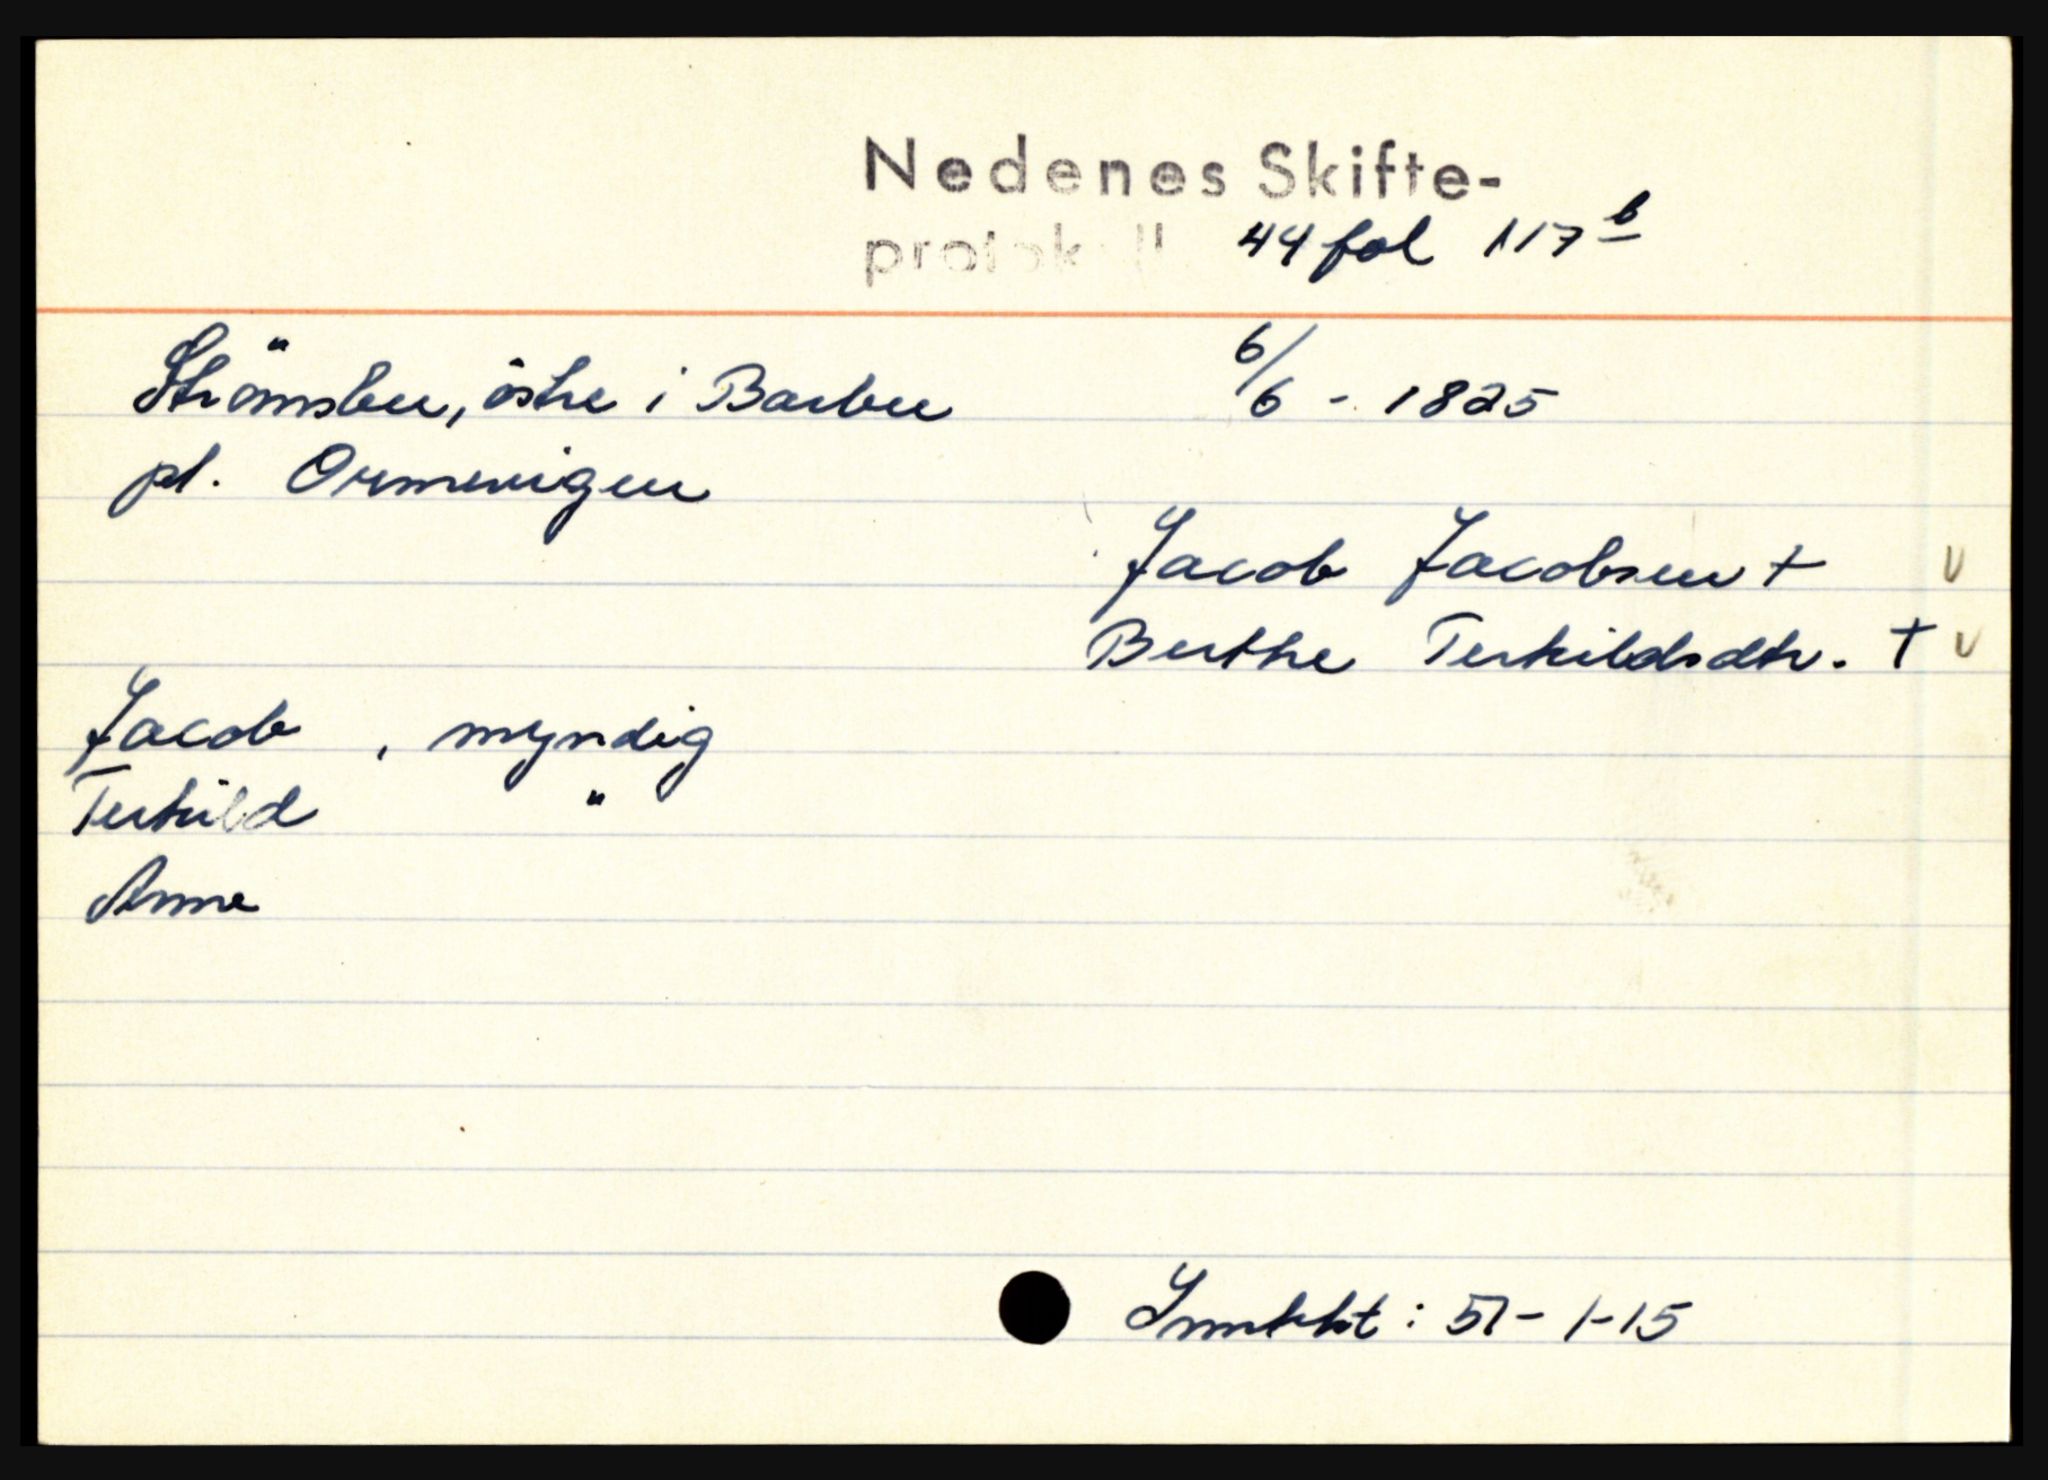 Nedenes Skifte-
protokoll 44 fol 117 b
Strömsbu, östre i Barbu 6/6 - 1825
pl. Ormevigen
Jacob Jacobsen + v
Berthe Terkildsdtr. + v
Jacob , myndig
Terkild "
Anne
: 51-1-15